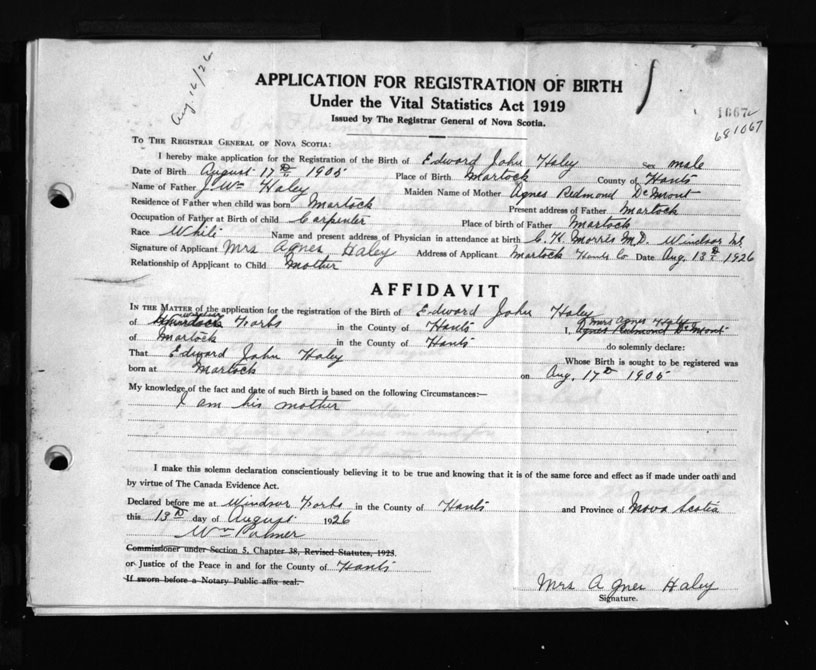 Aug 16/26
APPLICATION FOR REGISTRATION OF BIRTH
Under the Vital Statistics Act 1919
Issued by The Registrar General of Nova Scotia.
681067
TO THE REGISTRAR GENERAL OF NOVA SCOTIA:
I hereby make application for the Registration of the Birth of Edward John Haley Sex male
Date of Birth August 17th 1905 Place of Birth Martock County of Hants
Name of Father J. Wm Haley Maiden Name of Mother Agnes Redmond DeMont
Residence of Father when child was born Martock Present address of Father Martock
Occupation of Father at Birth of child Carpenter Place of birth of Father Martock
Race White Name and present address of Physician in attendance at birth C. H. Morris M.D. Windsor N.S.
Signature of Applicant Mrs Agnes Haley Address of Applicant Martock Hants Co Date Aug. 13th 1926
Relationship of Applicant to Child Mother
AFFIDAVIT
IN THE MATTER of the application for the registration of the Birth of Edward John Haley
of Windsor Forks in the County of Hants I, Mrs Agnes Haley Agnes Redmond DeMont
of Martock in the County of Hants do solemnly declare:
That Edward John Haley Whose Birth is sought to be registered was
born at Martock on Aug. 17th 1905
My knowledge of the fact and date of such Birth is based on the following Circumstances:—
I am his mother
I make this solemn declaration conscientiously believing it to be true and knowing that it is of the same force and effect as if made under oath and
by virtue of The Canada Evidence Act.
Declared before me at Windsor Forks in the County of Hants and Province of Nova Scotia
this 13th day of August 1926
Wm Palmer
Commissioner under Section 5, Chapter 38, Revised Statutes, 1923.
or Justice of the Peace in and for the County of Hants
If sworn before a Notary Public affix seal.
Mrs Agnes Haley
Signature.